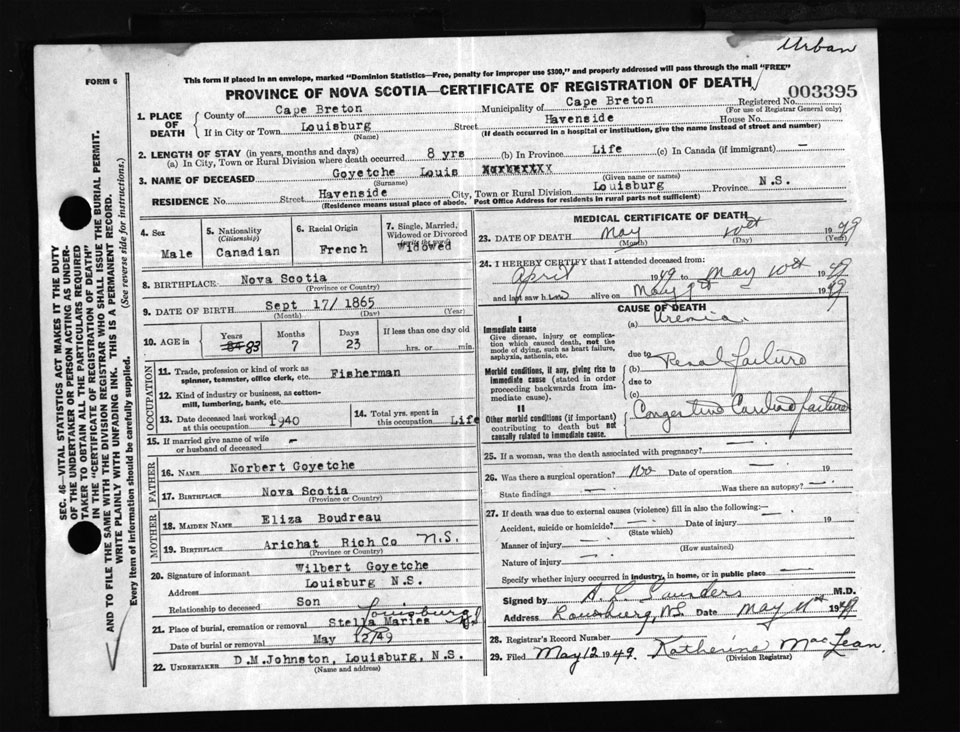 Urban
FORM 6
This form if placed in an envelope, marked "Dominion Statistics—Free, penalty for improper use $300," and properly addressed will pass through the mail "FREE"
PROVINCE OF NOVA SCOTIA—CERTIFICATE OF REGISTRATION OF DEATH
003395
1. PLACE OF DEATH
County of Cape Breton Municipality of Cape Breton Registered No.
(For use of Registrar General only)
If in City or Town Louisburg Street Havenside House No.
(Name) (If death occurred in a hospital or institution, give the name instead of street and number)
2. LENGTH OF STAY (in years, months and days)
(a) In City, Town or Rural Division where death occurred 8 yrs (b) In Province Life (c) In Canada (if immigrant) —
3. NAME OF DECEASED Goyetche Louis
(Surname) (Given name or names)
RESIDENCE No. Street Havenside City, Town or Rural Division Louisburg Province N.S.
(Residence means usual place of abode. Post Office Address for residents in rural parts not sufficient)
4. Sex Male
5. Nationality (Citizenship) Canadian
6. Racial Origin French
7. Single, Married, Widowed or Divorced (write the word) Widowed
8. BIRTHPLACE Nova Scotia
(Province or Country)
9. DATE OF BIRTH Sept 17/ 1865
(Month) (Day) (Year)
10. AGE in Years Months Days If less than one day old
83 7 23 hrs. or min.
OCCUPATION
11. Trade, profession or kind of work as spinner, teamster, office clerk, etc. Fisherman
12. Kind of industry or business, as cotton-mill, lumbering, bank, etc.
13. Date deceased last worked at this occupation 1940
14. Total yrs. spent in this occupation Life
15. If married give name of wife or husband of deceased —
FATHER
16. NAME Norbert Goyetche
17. BIRTHPLACE Nova Scotia
(Province or Country)
MOTHER
18. MAIDEN NAME Eliza Boudreau
19. BIRTHPLACE Arichat Rich Co N.S.
(Province or Country)
20. Signature of informant Wilbert Goyetche
Address Louisburg N.S.
Relationship to deceased Son
21. Place of burial, cremation or removal Stella Maries Louisburg N.S
Date of burial or removal May 12/49
22. UNDERTAKER D.M.Johnston, Louisburg, N.S.
(Name and address)
MEDICAL CERTIFICATE OF DEATH
23. DATE OF DEATH May 10th 1949
(Month) (Day) (Year)
24. I HEREBY CERTIFY that I attended deceased from:
April 1949 to May 10th 1949
and last saw him alive on May 9th 1949
CAUSE OF DEATH
I
Immediate cause
Give disease, injury or complication which caused death, not the mode of dying, such as heart failure, asphyxia, asthenia, etc.
(a) Uremia
due to
Morbid conditions, if any, giving rise to immediate cause (stated in order proceeding backwards from immediate cause).
(b) Renal failure
due to
(c)
II
Other morbid conditions (if important) contributing to death but not causally related to immediate cause.
Congestive Cardiac failure
25. If a woman, was the death associated with pregnancy? —
26. Was there a surgical operation? no Date of operation — 19
State findings — Was there an autopsy? —
27. If death was due to external causes (violence) fill in also the following:—
Accident, suicide or homicide? — Date of injury — 19
(State which)
Manner of injury —
(How sustained)
Nature of injury —
Specify whether injury occurred in industry, in home, or in public place —
Signed by A. L. Saunders M.D.
Address Louisburg, N.S. Date May 11th 1949
28. Registrar's Record Number
29. Filed May 12 1949. Katherine MacLean.
(Division Registrar)
SEC. 46—VITAL STATISTICS ACT MAKES IT THE DUTY
OF THE UNDERTAKER OR PERSON ACTING AS UNDER-
TAKER TO OBTAIN ALL THE PARTICULARS REQUIRED
IN THE "CERTIFICATE OF REGISTRATION OF DEATH"
AND TO FILE THE SAME WITH THE DIVISION REGISTRAR WHO SHALL ISSUE THE BURIAL PERMIT.
WRITE PLAINLY WITH UNFADING INK. THIS IS A PERMANENT RECORD.
Every item of information should be carefully supplied. (See reverse side for instructions.)